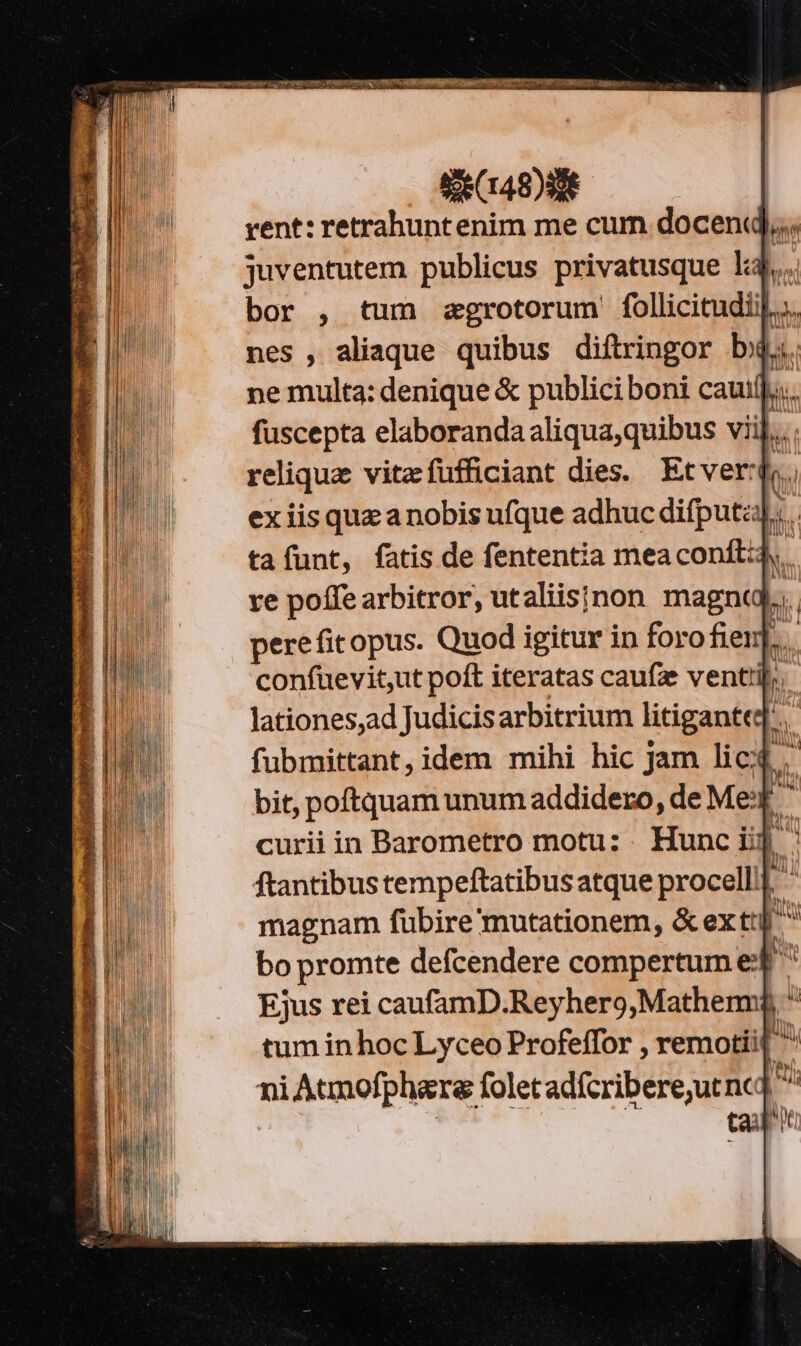 (148)
rent: retrahunt enim me cum docend
juventutem publicus privatusque la
bor , tum ægrotorum ſollicitudi
nes , aliaque quibus diſtringor b
ne multa: denique & publici boni cauſ
ſuscepta elaboranda aliqua, quibus vi
reliquæ vitæ ſufficiant dies. Et ver
ex iis quæ a nobis uſque adhuc diſputa
ta ſunt, ſatis de ſententia mea conſta
re poſſe arbitror, ut aliis non magno
pere ſit opus. Quod igitur in foro fieri
conſuevit, ut poſt iteratas cauſæ venti
lationes, ad Judicis arbitrium litigante
ſubmittant, idem mihi hic jam lice
bit, poſtquam unum addidero, de Mer
curii in Barometro motu: Hunc in
ſtantibus tempeſtatibus atque procelli
magnam ſubire mutationem, & ex tu
bo promte deſcendere compertum eſ
Ejus rei cauſam D. Reyhero, Mathema
tum in hoc Lyceo Profeſſor , remotii
ni Atmoſphæræ ſolet adſcribere, ut no
ta